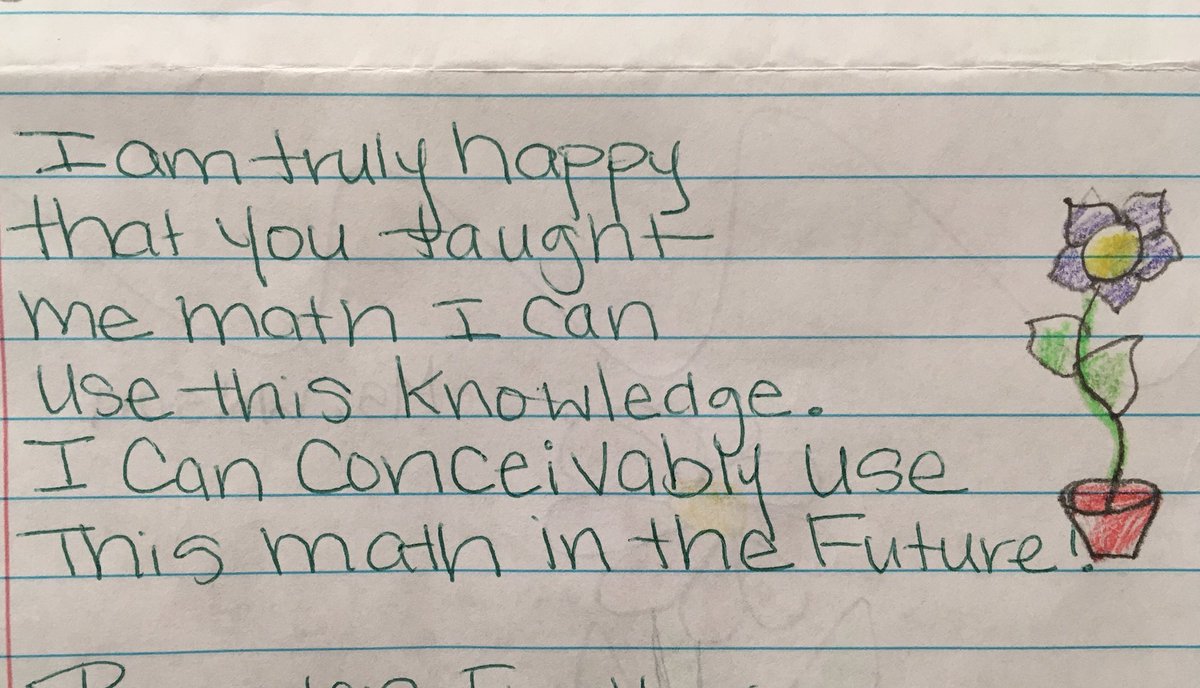 I am truly happy
that you taught
me math I can
use this knowledge.
I can conceivably use
This math in the Future!